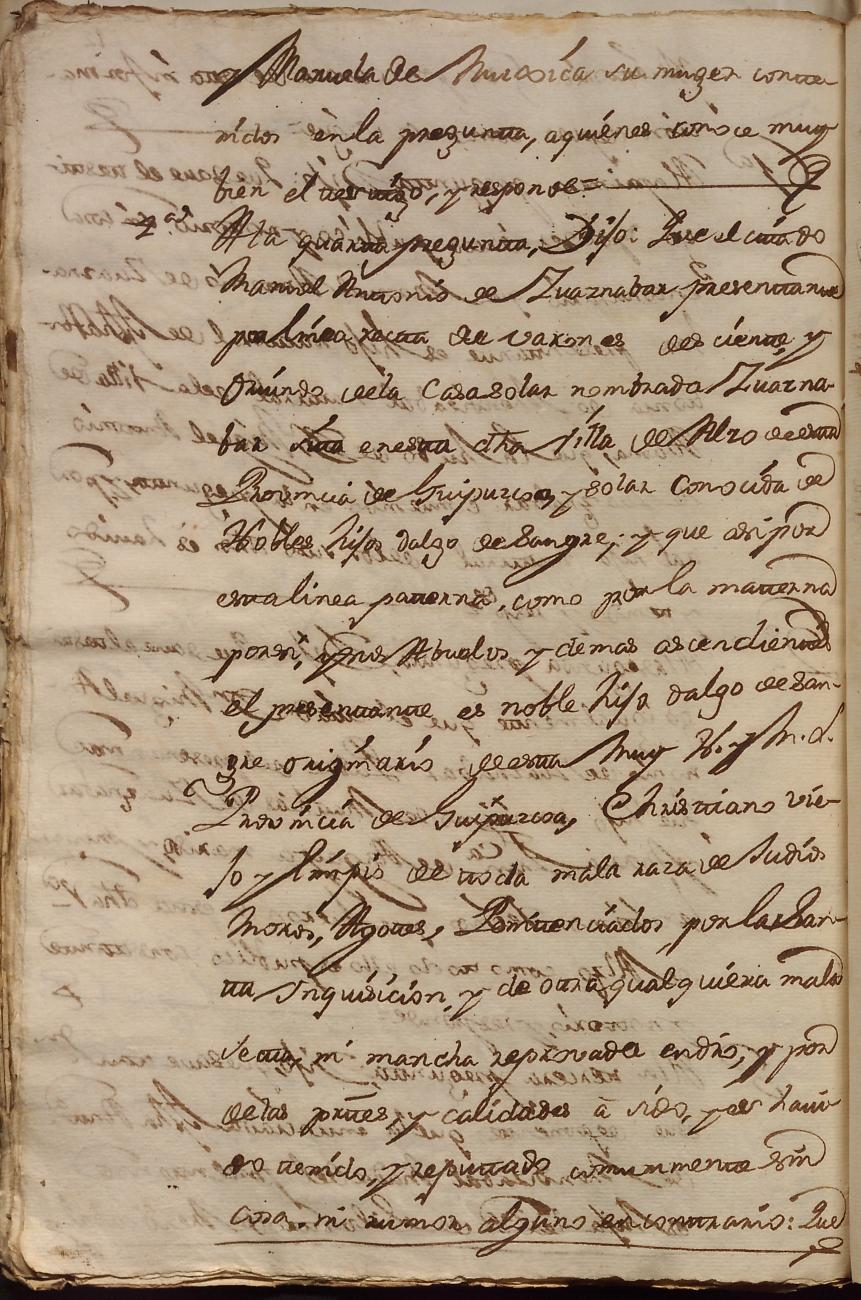 y Manuela de Murxica su muger conte
nidos en la pregunta, a quienes conoce muy
bien el testigo, y responde=
4ª A la quarta pregunta, Dijo: Que el citado
Manuel Antonio de Zuaznabar presentante
por linea recta de varones desciente y
Oriundo de la Casa solar nombrada Zuazna-
bar sita en esta dha Villa de Alzo de esta
Provincia de Guipuzcoa, y solar Conocida de
Nobles hijos dalgo de Sangre; y que asi por
esta linea paterna, como por la materna
por si, y sus Abuelos y demas ascendientes
el presentante es noble hijo dalgo de San-
gre originario de esta Muy N. y M. L.
Provincia de Guipuzcoa, Christiano vie-
jo y limpio de toda mala raza de Judios
Moros, Agotes, Penitenciados, por la San-
ta Inquisicion, y de otra qualquiera mala
secta, ni mancha reprovada en dro, y por
de tas prtes, y calidades a sido, y es havi
do tenido, y reputado comunmente sin
cosa, ni rumor alguno en contrario: Que